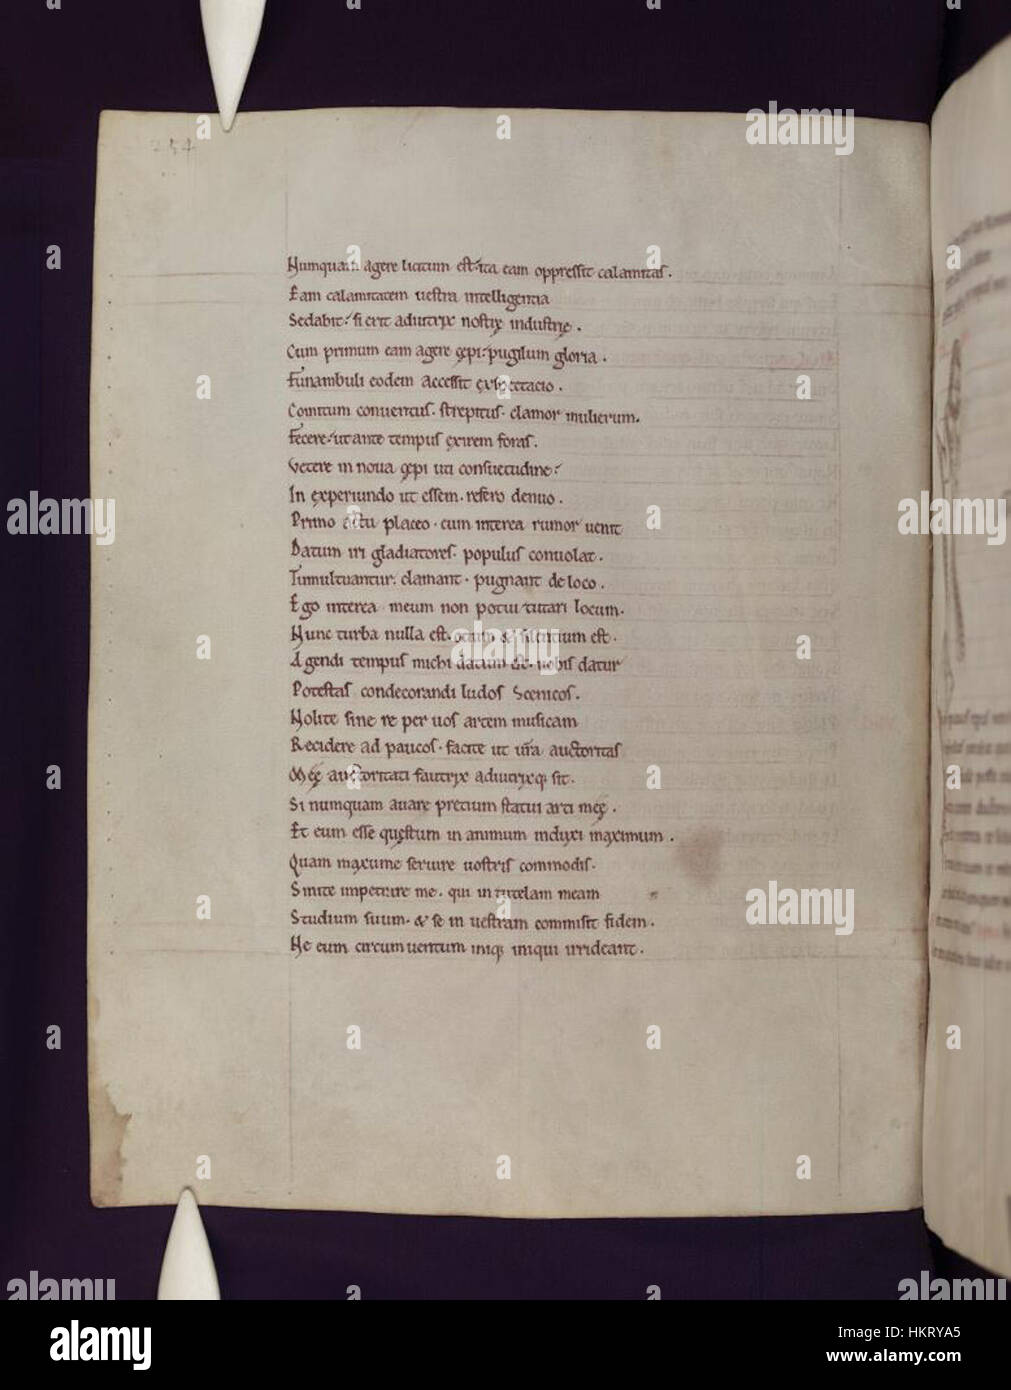 254
Numquam agere licitum est. ita eam oppressit calamitas.
Eam calamitatem uestra intelligentia
Sedabit. si erit adiutrix nostrę industrię.
Cum primum eam agere cępi. pugilum gloria.
Funambuli eodem accessit exspectacio.
Comitum conuentus. strepitus. clamor mulierum.
Fecere. ut ante tempus exirem foras.
Vetere in noua cępi uti consuetudine.
In experiundo ut essem. refero denuo.
Primo actu placeo. cum interea rumor uenit
Datum iri gladiatores. populus conuolat.
Tumultuantur. clamant. pugnant de loco.
Ego interea meum non potui tutari locum.
Nunc turba nulla est. ocium & silentium est.
Agendi tempus michi datum est. uobis datur
Potestas condecorandi ludos scenicos.
Nolite sine re per uos artem musicam
Recidere ad paucos. facite ut ur̄a auctoritas
Meę auctoritati fautrix adiutrixq; sit.
Si numquam auare precium statui arti meę.
Et eum esse quęstum in animum induxi maximum.
Quam maxume seruire uostris commodis.
Sinite impetrare me. qui in tutelam meam
Studium suum. & se in uestram commisit fidem.
Ne eum circumuentum iniq; iniqui irrideant.
alamy
alamy
Image ID: HKRYA5
www.alamy.com